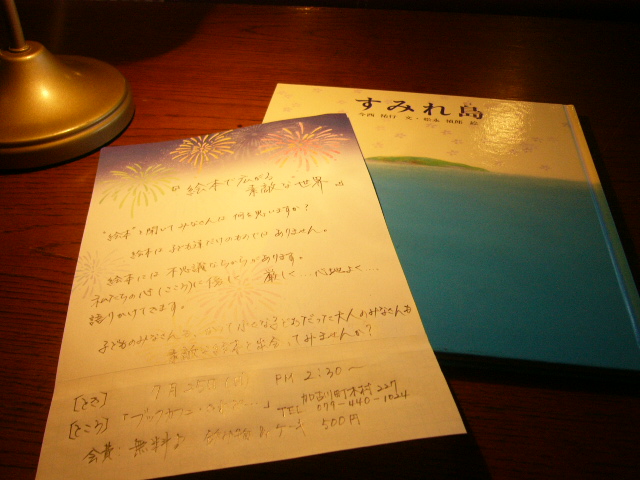 すみれ島
今西 祐行 文・松永 禎郎 絵
絵本で広がる
素敵な世界
"絵本"と聞いてみなさんは何を思いますか?
絵本は子ども達だけのものではありません。
絵本には不思議なちからがあります。
私たちの心(こころ)に優しく… 厳しく… 心地よく…
語りかけてきます。
子どものみなさんも、かつて小さな子どもだった大人のみなさんも
素敵な絵本と出会ってみませんか?
[とき] 7月25日 PM 2:30〜
[ところ] 「ブックカフェ 加古川町木村 227
TEL 079-440-1024
会費:無料 ケーキ 500円